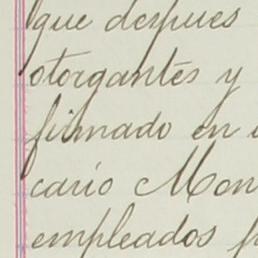 que despues
otorgantes y
firmado en
cario Mon
empleados